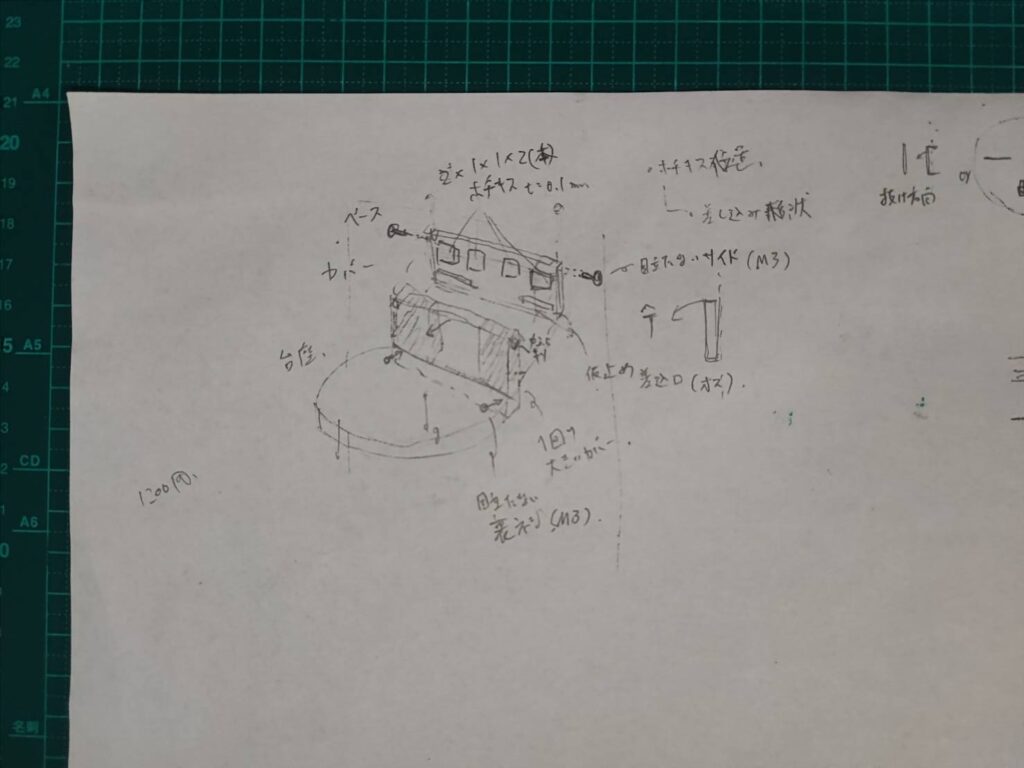 23
22
A4
21
20
19
18
17
16
5 A5
4
3
CD
2
1
A6
0
名刺
2 × 1 × 1 × 2(本)
ホチキス t=0.1mm
ベース
カバー
台座
・ホチキス
・差し込み
目立たないサイド(M3)
抜け方向
or
仮止め差込口(オス).
1回り
大きいカバー
目立たない
裏ネジ(M3).
1200円